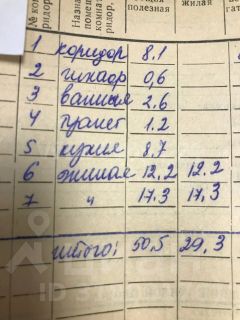 № ком
ридор,
Назна
помещ
комнат
ридор,
полезная
жилая
гат
1 коридор 8.1
2 шкаф 0,6
3 ванная 2.6
4 туалет 1.2
5 кухня 8,7
6 жилая 12,2 12.2
7 " 17,3 17,3
итого: 50,5 29,3